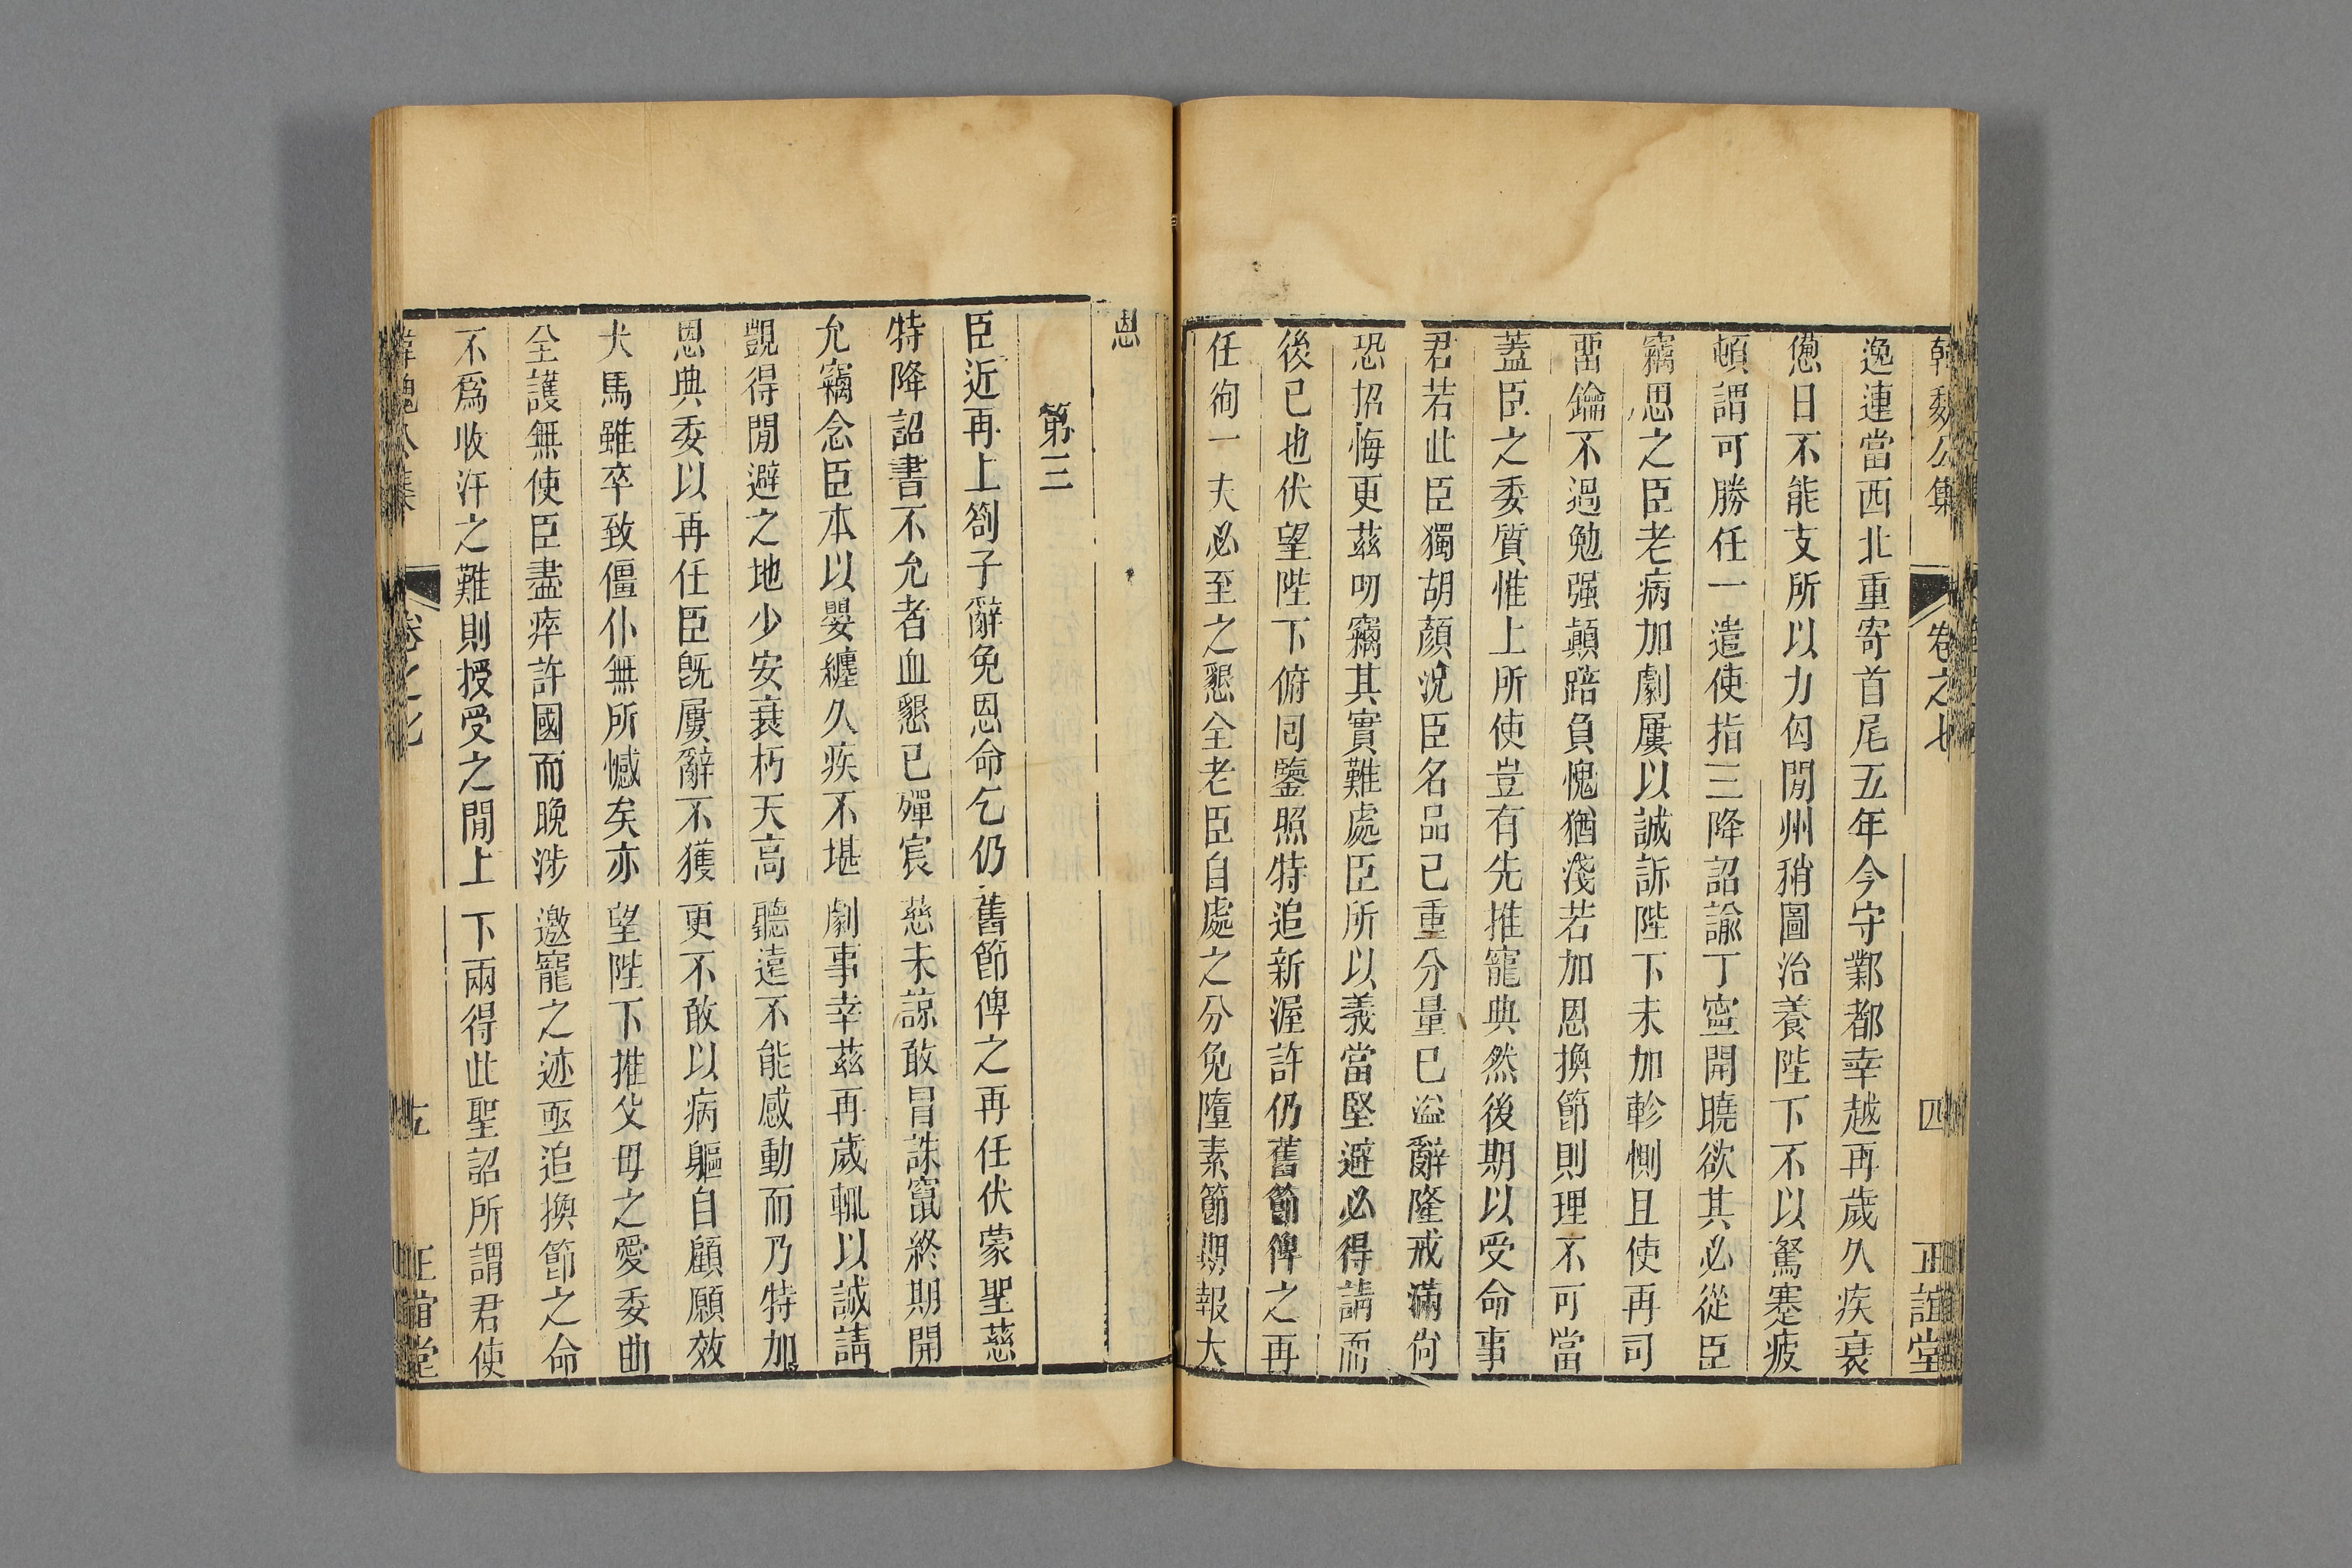 韓魏公集 卷之七 四 正誼堂
逸連當西北重寄首尾五年今守鄴都幸越再歲久疾衰
憊日不能支所以力匃閒州稍圖治養陛下不以駑蹇疲
頓謂可勝任一遣使指三降詔諭丁寧開曉欲其必從臣
竊思之臣老病加劇屢以誠訴陛下未加軫惻且使再司
畱鑰不過勉强顛踣負愧猶淺若加恩換節則理不可當
蓋臣之委質惟上所使豈有先推寵典然後期以受命事
君若此臣獨胡顏況臣名品已重分量已溢辭隆戒滿尙
恐招悔更茲叨竊其實難處臣所以義當堅避必得請而
後已也伏望陛下俯囘鑒照特追新渥許仍舊節俾之再
任徇一夫必至之懇全老臣自處之分免隳素節期報大
恩
第三
臣近再上劄子辭免恩命乞仍舊節俾之再任伏蒙聖慈
特降詔書不允者血懇已殫宸慈未諒敢冒誅竄終期開
允竊念臣本以嬰纏久疾不堪劇事幸茲再歲輒以誠請
覬得閒避之地少安衰朽天高聽遠不能感動而乃特加
恩典委以再任臣旣屢辭不獲更不敢以病軀自顧願效
犬馬雖卒致僵仆無所憾矣亦望陛下推父母之愛委曲
全護無使臣盡瘁許國而晚涉邀寵之迹亟追換節之命
不爲收汗之難則授受之閒上下兩得此聖詔所謂君使
韓魏公集 卷之七 五 正誼堂